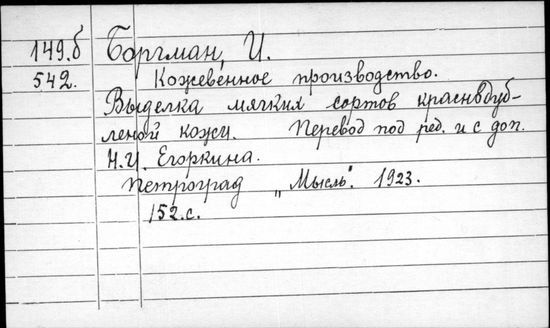 149.б Боргман, И.
542. Кожевенное производство.
Выделка мягких сортов краснодуб-
леной кожи. Перевод под ред. и с доп.
Н.И. Егоркина.
Петроград „Мысль". 1923.
152.с.